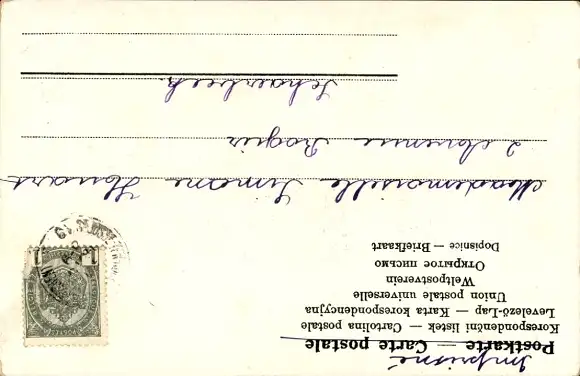 Imprimé
Postkarte — Carte postale
Korespondenční lístek — Cartolina postale
Levelező-Lap — Karta korespondencyjna
Union postale universelle
Weltpostverein
Открытое письмо
Dopisnice — Briefkaart
Mademoiselle Simone Houart
2 Avenue Rogier
Schaerbeek
1 1